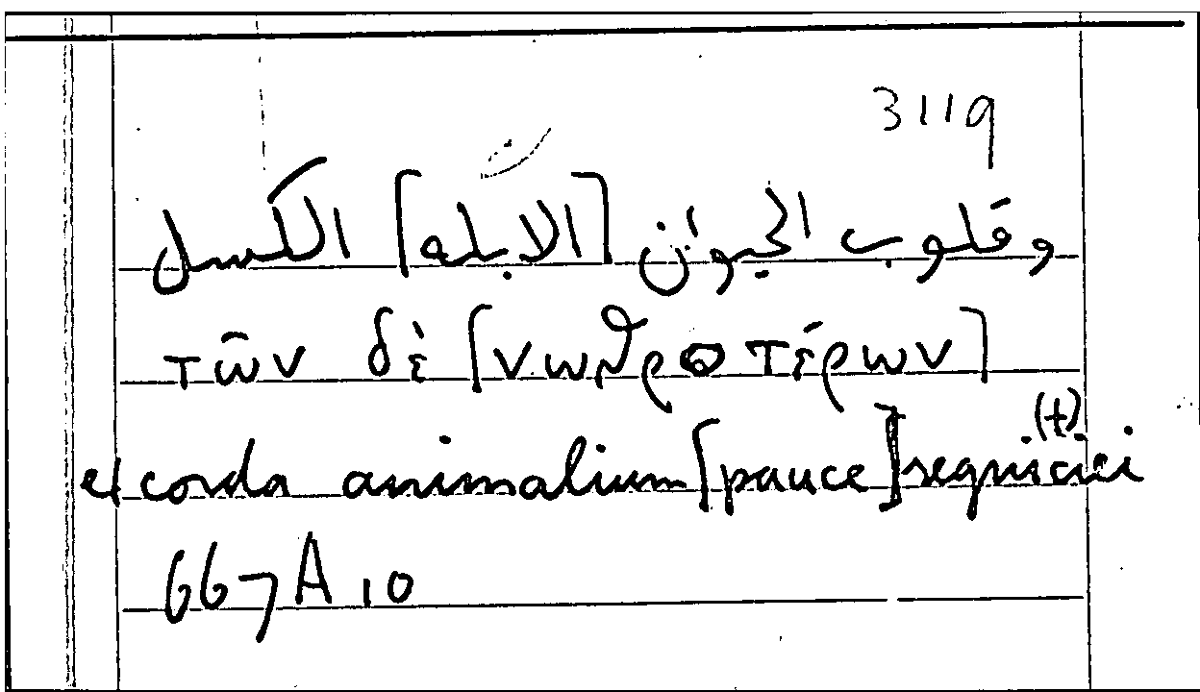 3119
وقلوب الحيوان [الابله] الكسل
τῶν δὲ [νωθροτέρων]
et corda animalium [pauce] segnis(t)iei
667A10